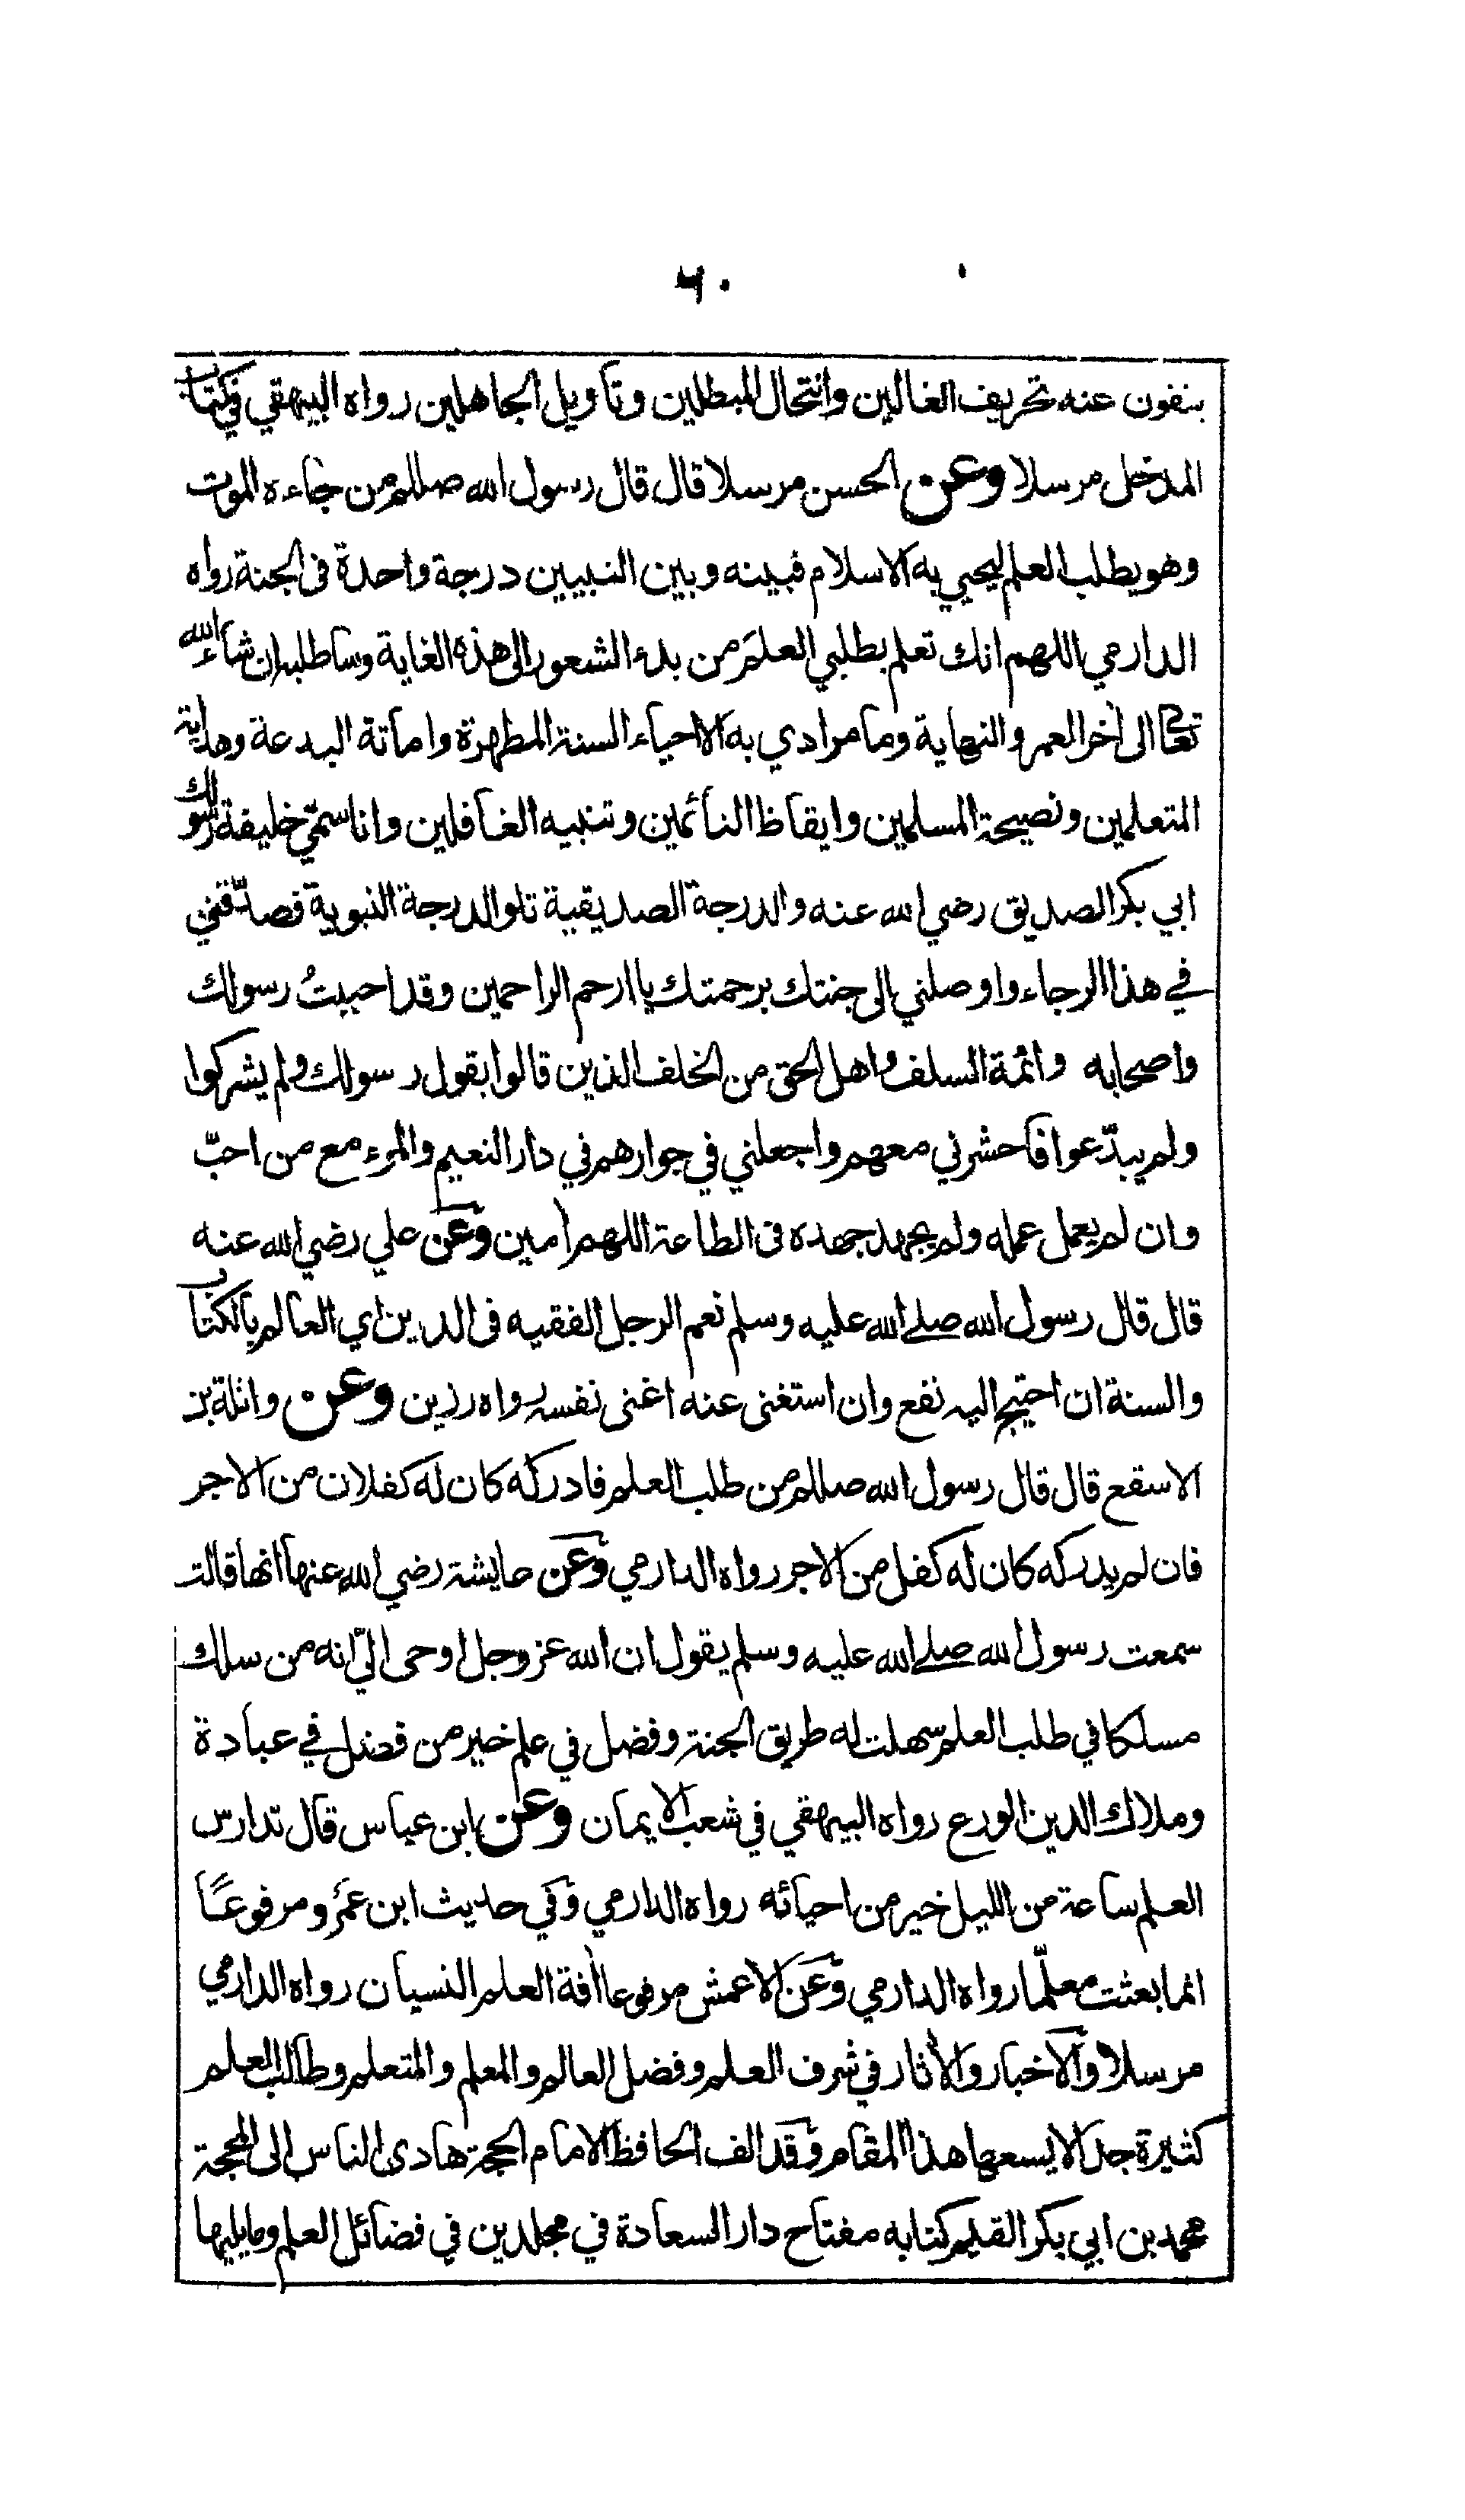 ٦٠
ينفون عنه تحريف الغالين وانتحال المبطلين وتاويل الجاهلين رواه البيهقي في كتاب
المدخل مرسلا وعن الحسن مرسلا قال قال رسول الله صللم من جاءه الموت
وهو يطلب العلم ليحيي به الاسلام فبينه وبين النبيين درجة واحدة فى الجنة رواه
الدارمي اللهم انك تعلم بطلبي العلم من بدء الشعور الى هذه الغاية وساطلبه ان شاء الله
تعالى الى اخر العمر والنهاية وما مرادي به الا احياء السنة المطهرة واماتة البدعة وهداية
المتعلمين ونصيحة المسلمين وايقاظ النائمين وتنبيه الغافلين وانا سمّي خليفة رسولك
ابي بكر الصديق رضي الله عنه والدرجة الصديقية تلو الدرجة النبوية فصدّقني
في هذا الرجاء واوصلني الى جنتك برحمتك يا ارحم الراحمين وقد احببتُ رسولك
واصحابه وائمة السلف واهل الحق من الخلف الذين قالوا بقول رسولك ولم يشركوا
ولم يبدّعوا فاحشرني معهم واجعلني في جوارهم في دار النعيم والمرء مع من احبّ
وان لم يعمل عمله ولم يجهد جهده فى الطاعة اللهم امين وعن علي رضي الله عنه
قال قال رسول الله صلى الله عليه وسلم نعم الرجل الفقيه فى الدين اي العالم بالكتاب
والسنة ان احتيج اليه نفع وان استغنى عنه اغنى نفسه رواه رزين وعن واثلة بن
الاسقع قال قال رسول الله صللم من طلب العلم فادركه كان له كفلان من الاجر
فان لم يدركه كان له كفل من الاجر رواه الدارمي وعن عايشة رضي الله عنها انها قالت
سمعت رسول الله صلى الله عليه وسلم يقول ان الله عز وجل اوحى اليّ انه من سلك
مسلكا في طلب العلم سهلت له طريق الجنة وفضل في علم خير من فضل في عبادة
وملاك الدين الورع رواه البيهقي في شعب الايمان وعن ابن عباس قال تدارس
العلم ساعة من الليل خير من احيائه رواه الدارمي وفي حديث ابن عمرو مرفوعًا
انما بعثت معلّما رواه الدارمي وعن الاعمش مرفوعا افة العلم النسيان رواه الدارمي
مرسلا والاخبار والاثار في شرف العلم وفضل العالم والمعلم والمتعلم وطالب العلم
كثيرة جدا لا يسعها هذا المقام وقد الف الحافظ الامام الحجة هادى الناس الى المحجة
محمد بن ابي بكر القيم كتابه مفتاح دار السعادة في مجلدين في فضائل العلم وما يليها